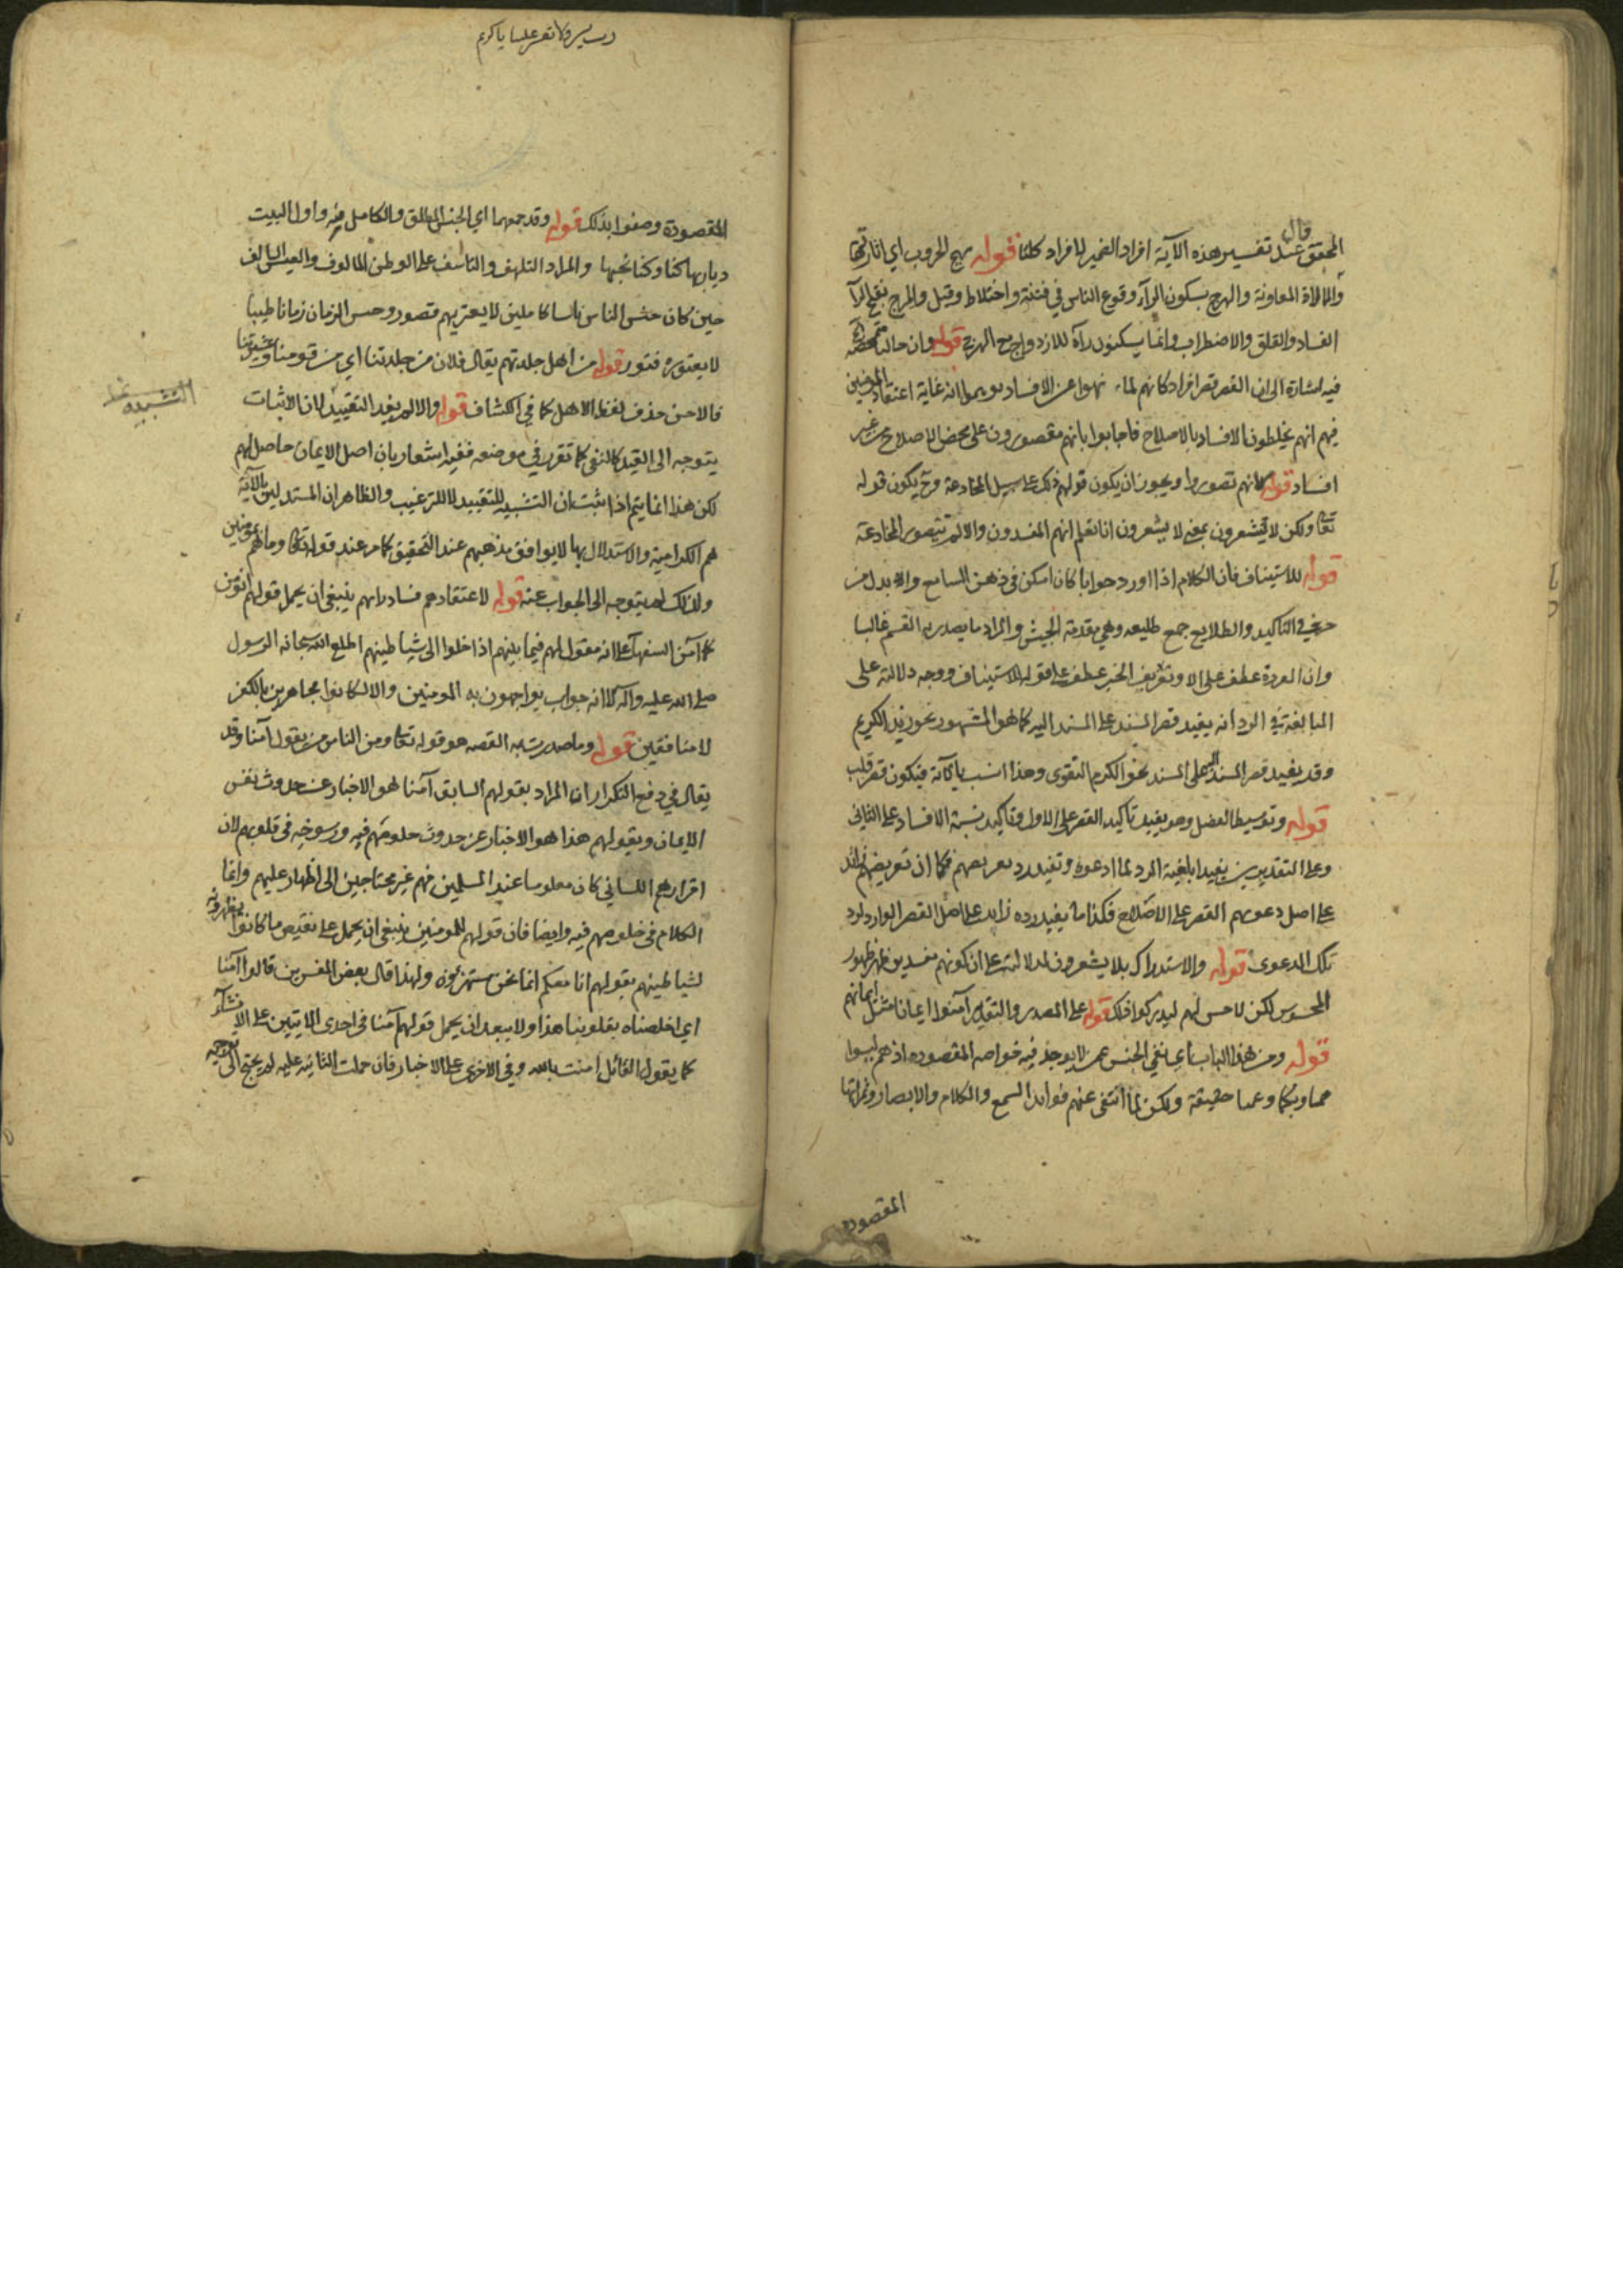 قال
المحقق عند تفسير هذه الآية افراد الضمير لافراد كلنا قوله هيج الحروب اي اثارتها
والمالاة المعاونة والهرج بسكون الرآء وقوع الناس في فتنة واختلاط وقتل والمرج بفتح الرآ
الفساد والقلق والاضطراب وانما يسكنون رآه للازدواج مع الهرج قوله وان حالنا متمحضة
فيه اشارة الى ان القصر قصر افراد كانهم لما نهوا عن الافساد اعتقاد المومنين
فيهم انهم يخلطون الافساد بالاصلاح فاجابوا بانهم مقصورون على محض الاصلاح من غير
افساد قوله كانهم تصوروا ويجوز ان يكون قولهم ذلك على سبيل المخادعة وح يكون قوله
تعا ولكن لا يشعرون بمعنى لا يشعرون انا نعلم انهم المفسدون والا لم تتصور المخادعة
قوله للاستيناف فان الكلام اذا اورد جوابا كان امكن في ذهن السامع والا بدل من
حرفي التاكيد والطلايع جمع طليعه وهي مقدمة الجيش والمراد ما يصدر به القسم غالبا
وان المعردة عطف على الا وتعريف الخبر عطف على قوله للاستيناف ووجه دلالته على
المبالغة في الرد انه يفيد قصر المسند على المسند اليه كما هو المشهور نحو زيد الكريم
وقد يفيد قصر المسند اليه على المسند نحو الكرم التقوى وهذا انسب بالآية فيكون قصر قلب
قوله وتوسيط الفصل وهو يفيد تاكيد القصر على الاول وتاكيد نسبة الافساد على الثاني
وعلى التقديرين يفيد ابلغية الرد لما ادعوه وتفيد رد تعريضهم فكما ان تعريضهم زائد
على اصل دعوتهم القصر على الاصلاح فكذا ما يفيد رده زايد على اصل القصر الوارد لرد
تلك الدعوى قوله والاستدراك بلا يشعرون لدلالته على ان كونهم مفسدين ظهر ظهور
المحسوس لكن لا حس لهم ليدركوا ذلك قوله على المصدر والتقدير آمنوا ايمانا مثل ايمانهم
قوله ومن هذا الباب اي نفي الجنس عمن لا يوجد فيه خواصه المقصوده اذ هم ليسوا
صما وبكما وعميا حقيقة ولكن لما انتفى عنهم فوائد السمع والكلام والابصار وثمراتها
المقصوده
رب يسر ولا تعسر علينا يا كريم
المقصودة وصفوا بذلك قوله وقد جمعهما اي الجنس المطلق والكامل منه واول البيت
ديار بها كنا وكنا نحبها والمراد التلهف والتاسف على الوطن المالوف والعيش السالف
حين كان جنس الناس ناسا كاملين لا يعتريهم قصور وجنس الزمان زمانا طيبا
لا يعتوره فتور قوله من اهل جلدتهم يقال فلان من جلدتنا اي من قومنا وعشيرتنا
فالاحسن حذف لفظ الاهل كما في الكشاف قوله والا لم يفد التقييد لان الاثبات
يتوجه الى القيد كالنفي كما تقرر في موضعه ففيه اشعار بان اصل الايمان حاصل لهم
لكن هذا انما يتم اذا ثبت ان التشبيه للتقييد لا للترغيب والظاهر ان المستدلين بالآية
هم الكرامية والاستدلال بها لا يوافق مذهبهم عند التحقيق كما مر عند قوله تعا وما هم بمومنين
ولذلك لم يتوجه الى الجواب عنه قوله لاعتقادهم فساد رايهم ينبغي ان يحمل قولهم انؤمن
كما آمن السفهآء على انه مقول لهم فيما بينهم اذا خلوا الى شياطينهم اطلع الله سبحانه الرسول
صلى الله عليه وآله لا انه جواب يواجهون به المومنين والا لكانوا مجاهرين بالكفر
لا منافقين قوله وما صدرت به القصه هو قوله تعا ومن الناس من يقول آمنا وقد
يقال في دفع التكرار ان المراد بقولهم السابق آمنا هو الاخبار عن حدوث نفس
الايمان وبقولهم هذا هو الاخبار عن حدوث خلوصهم فيه ورسوخه في قلوبهم لان
اقرارهم اللساني كان معلوما عند المسلمين فهم غير محتاجين الى اظهاره عليهم وانما
الكلام في خلوصهم فيه وايضا فان قولهم للمومنين ينبغي ان يحمل على نقيض ما كانوا يظهرونه
لشياطينهم بقولهم انا معكم انما نحن مستهزؤن ولهذا قال بعض المفسرين قالوا آمنا
اي اخلصناه بقلوبنا هذا ولا يبعد ان يحمل قولهم آمنا في احدى الايتين على الانشآء
كما يقول القائل امنت بالله وفي الاخرى على الاخبار فان حملت الثانيه عليه لم يحتج الى توجيه
التشبيه